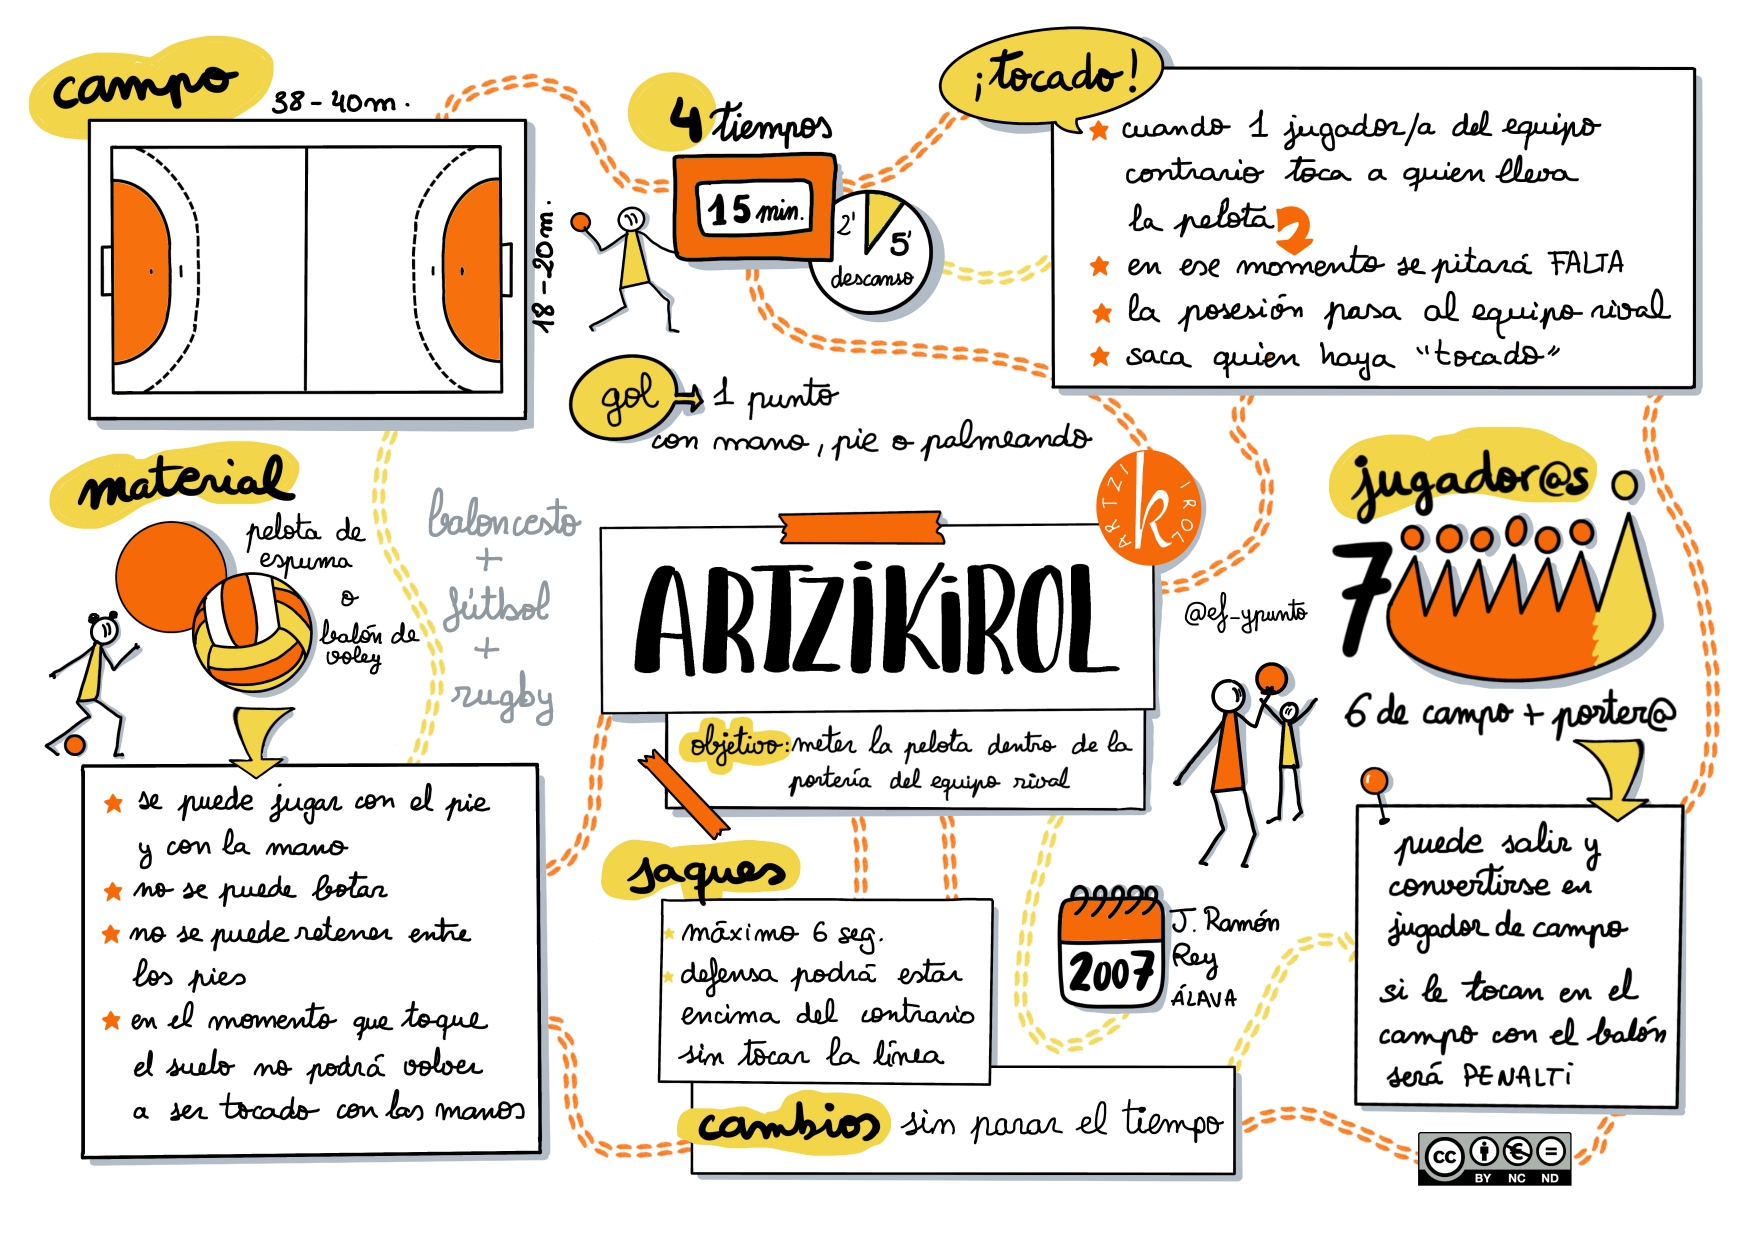 campo
38 - 40 m.
18 - 20 m.
4 tiempos
15 min.
2'
5'
descanso
¡tocado!
cuando 1 jugador/a del equipo
contrario toca a quien lleva
la pelota
en ese momento se pitará FALTA
la posesión pasa al equipo rival
saca quien haya "tocado"
gol
1 punto
con mano, pie o palmeando
material
pelota de
espuma
o
balón de
voley
baloncesto
+
fútbol
+
rugby
ARTZIKIROL
ARTZI k IROL
@ef_ypunto
objetivo: meter la pelota dentro de la
portería del equipo rival
jugador@s
7
6 de campo + porter@
puede salir y
convertirse en
jugador de campo
si le tocan en el
campo con el balón
será PENALTI
se puede jugar con el pie
y con la mano
no se puede botar
no se puede retener entre
los pies
en el momento que toque
el suelo no podrá volver
a ser tocado con las manos
saques
máximo 6 seg.
defensa podrá estar
encima del contrario
sin tocar la línea
2007
J. Ramón
Rey
ÁLAVA
cambios sin parar el tiempo
cc
BY NC ND